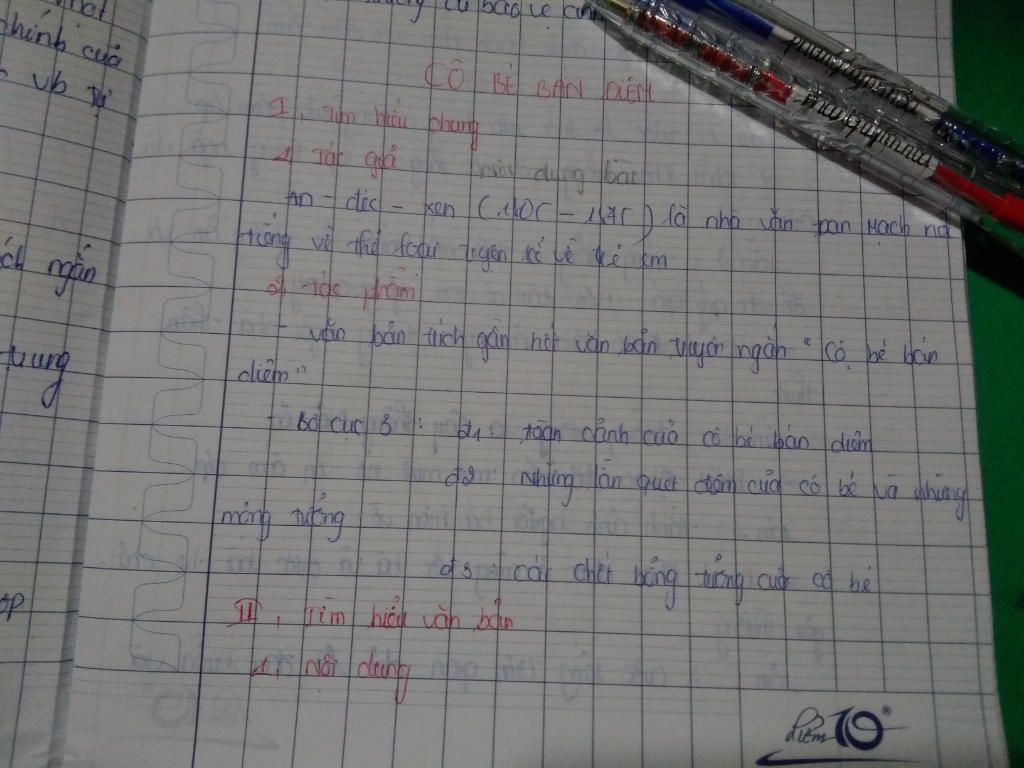 chính của
vb
CÔ BÉ BÁN DIÊM
I, Tìm hiểu chung
1, Tác giả nội dung bài
An - đéc - xen ( ) là nhà văn Đan Mạch nổ
tiếng về thể loại truyện kể về trẻ em
ngắn
2, Tác phẩm
- văn bản trích gần hết văn bản truyện ngắn " Cô bé bán
trung
diêm "
- Bố cục 3 : đ1 : toàn cảnh của cô bé bán diêm
đ2 : Những lần quẹt diêm của cô bé và những
mộng tưởng
đ3 : cái chết bóng tưởng của cô bé
II, Tìm hiểu văn bản
1, Nội dung
điểm 10